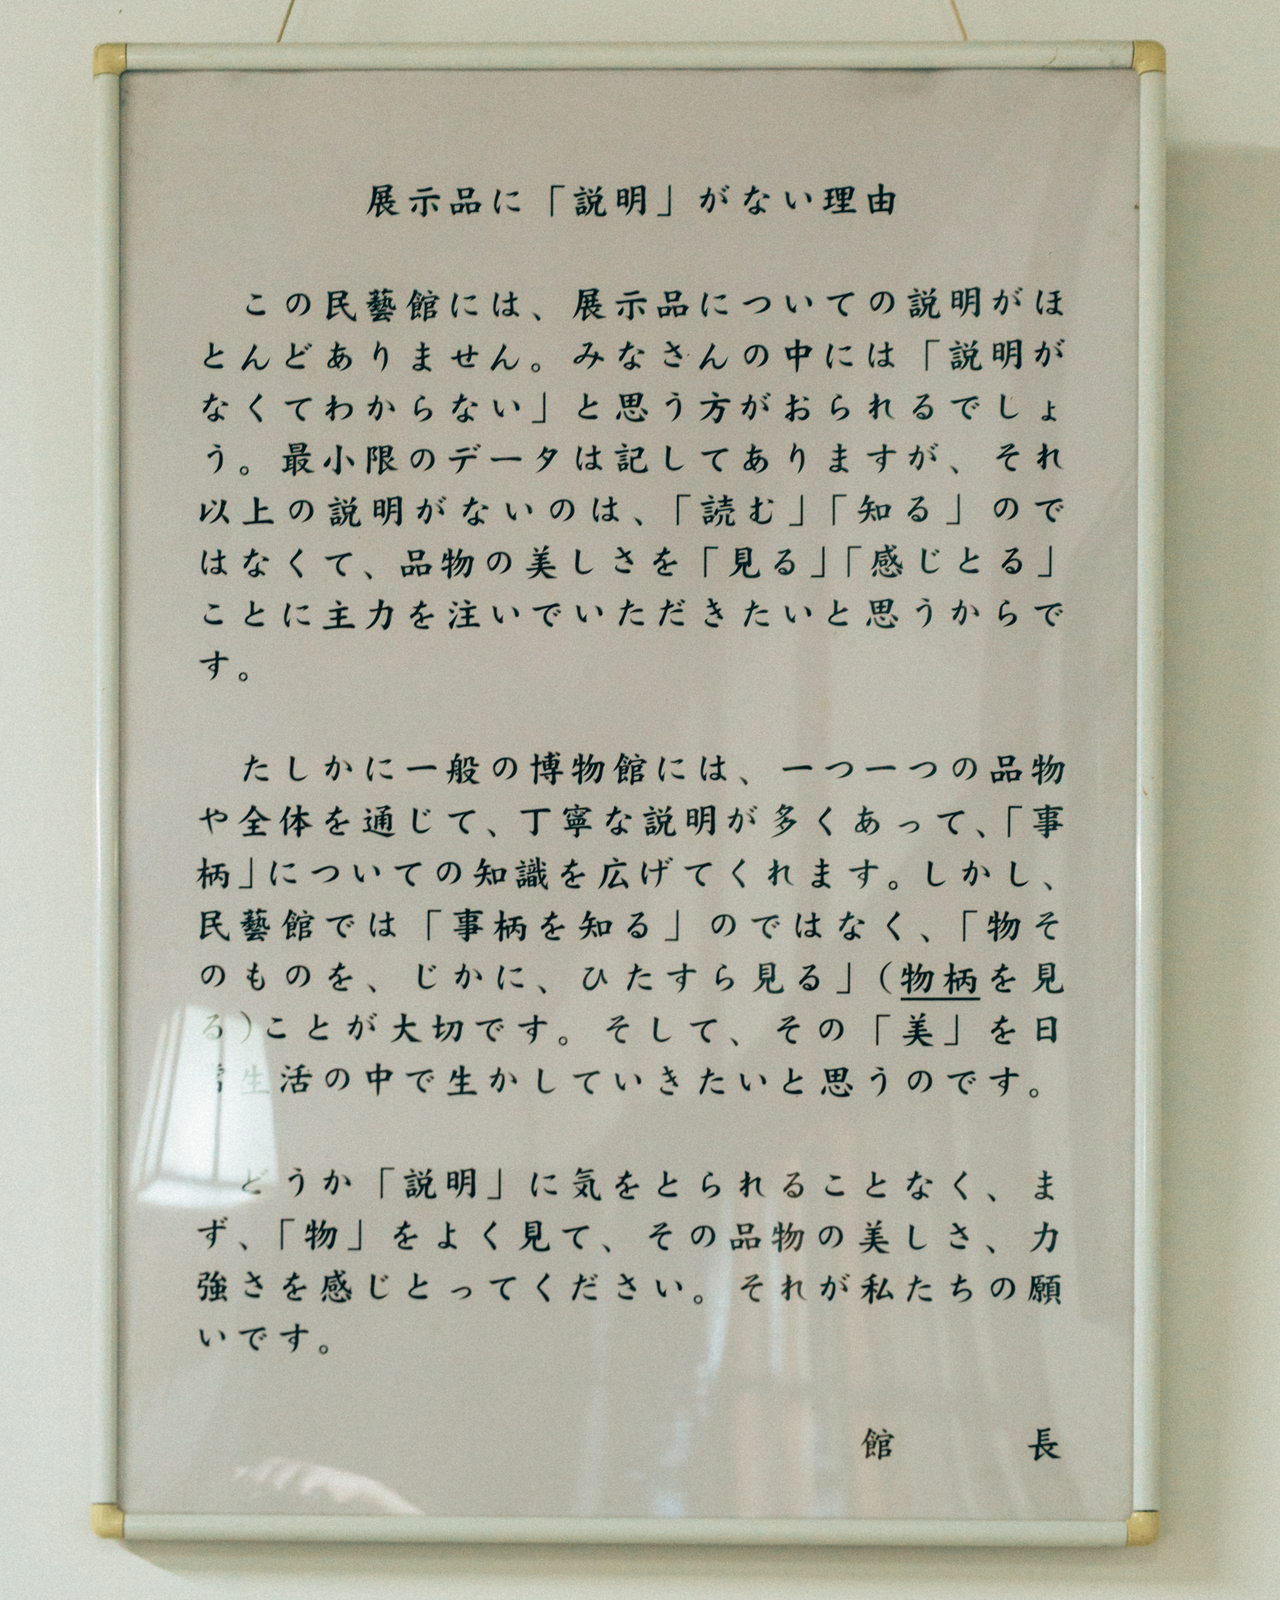 展示品に「説明」がない理由
この民藝館には、展示品についての説明がほ
とんどありません。みなさんの中には「説明が
なくてわからない」と思う方がおられるでしょ
う。最小限のデータは記してありますが、それ
以上の説明がないのは、「読む」「知る」ので
はなくて、品物の美しさを「見る」「感じとる」
ことに主力を注いでいただきたいと思うからで
す。
たしかに一般の博物館には、一つ一つの品物
や全体を通じて、丁寧な説明が多くあって、「事
柄」についての知識を広げてくれます。しかし、
民藝館では「事柄を知る」のではなく、「物そ
のものを、じかに、ひたすら見る」(物柄を見
る)ことが大切です。そして、その「美」を日
常生活の中で生かしていきたいと思うのです。
どうか「説明」に気をとられることなく、ま
ず、「物」をよく見て、その品物の美しさ、力
強さを感じとってください。それが私たちの願
いです。
館　長